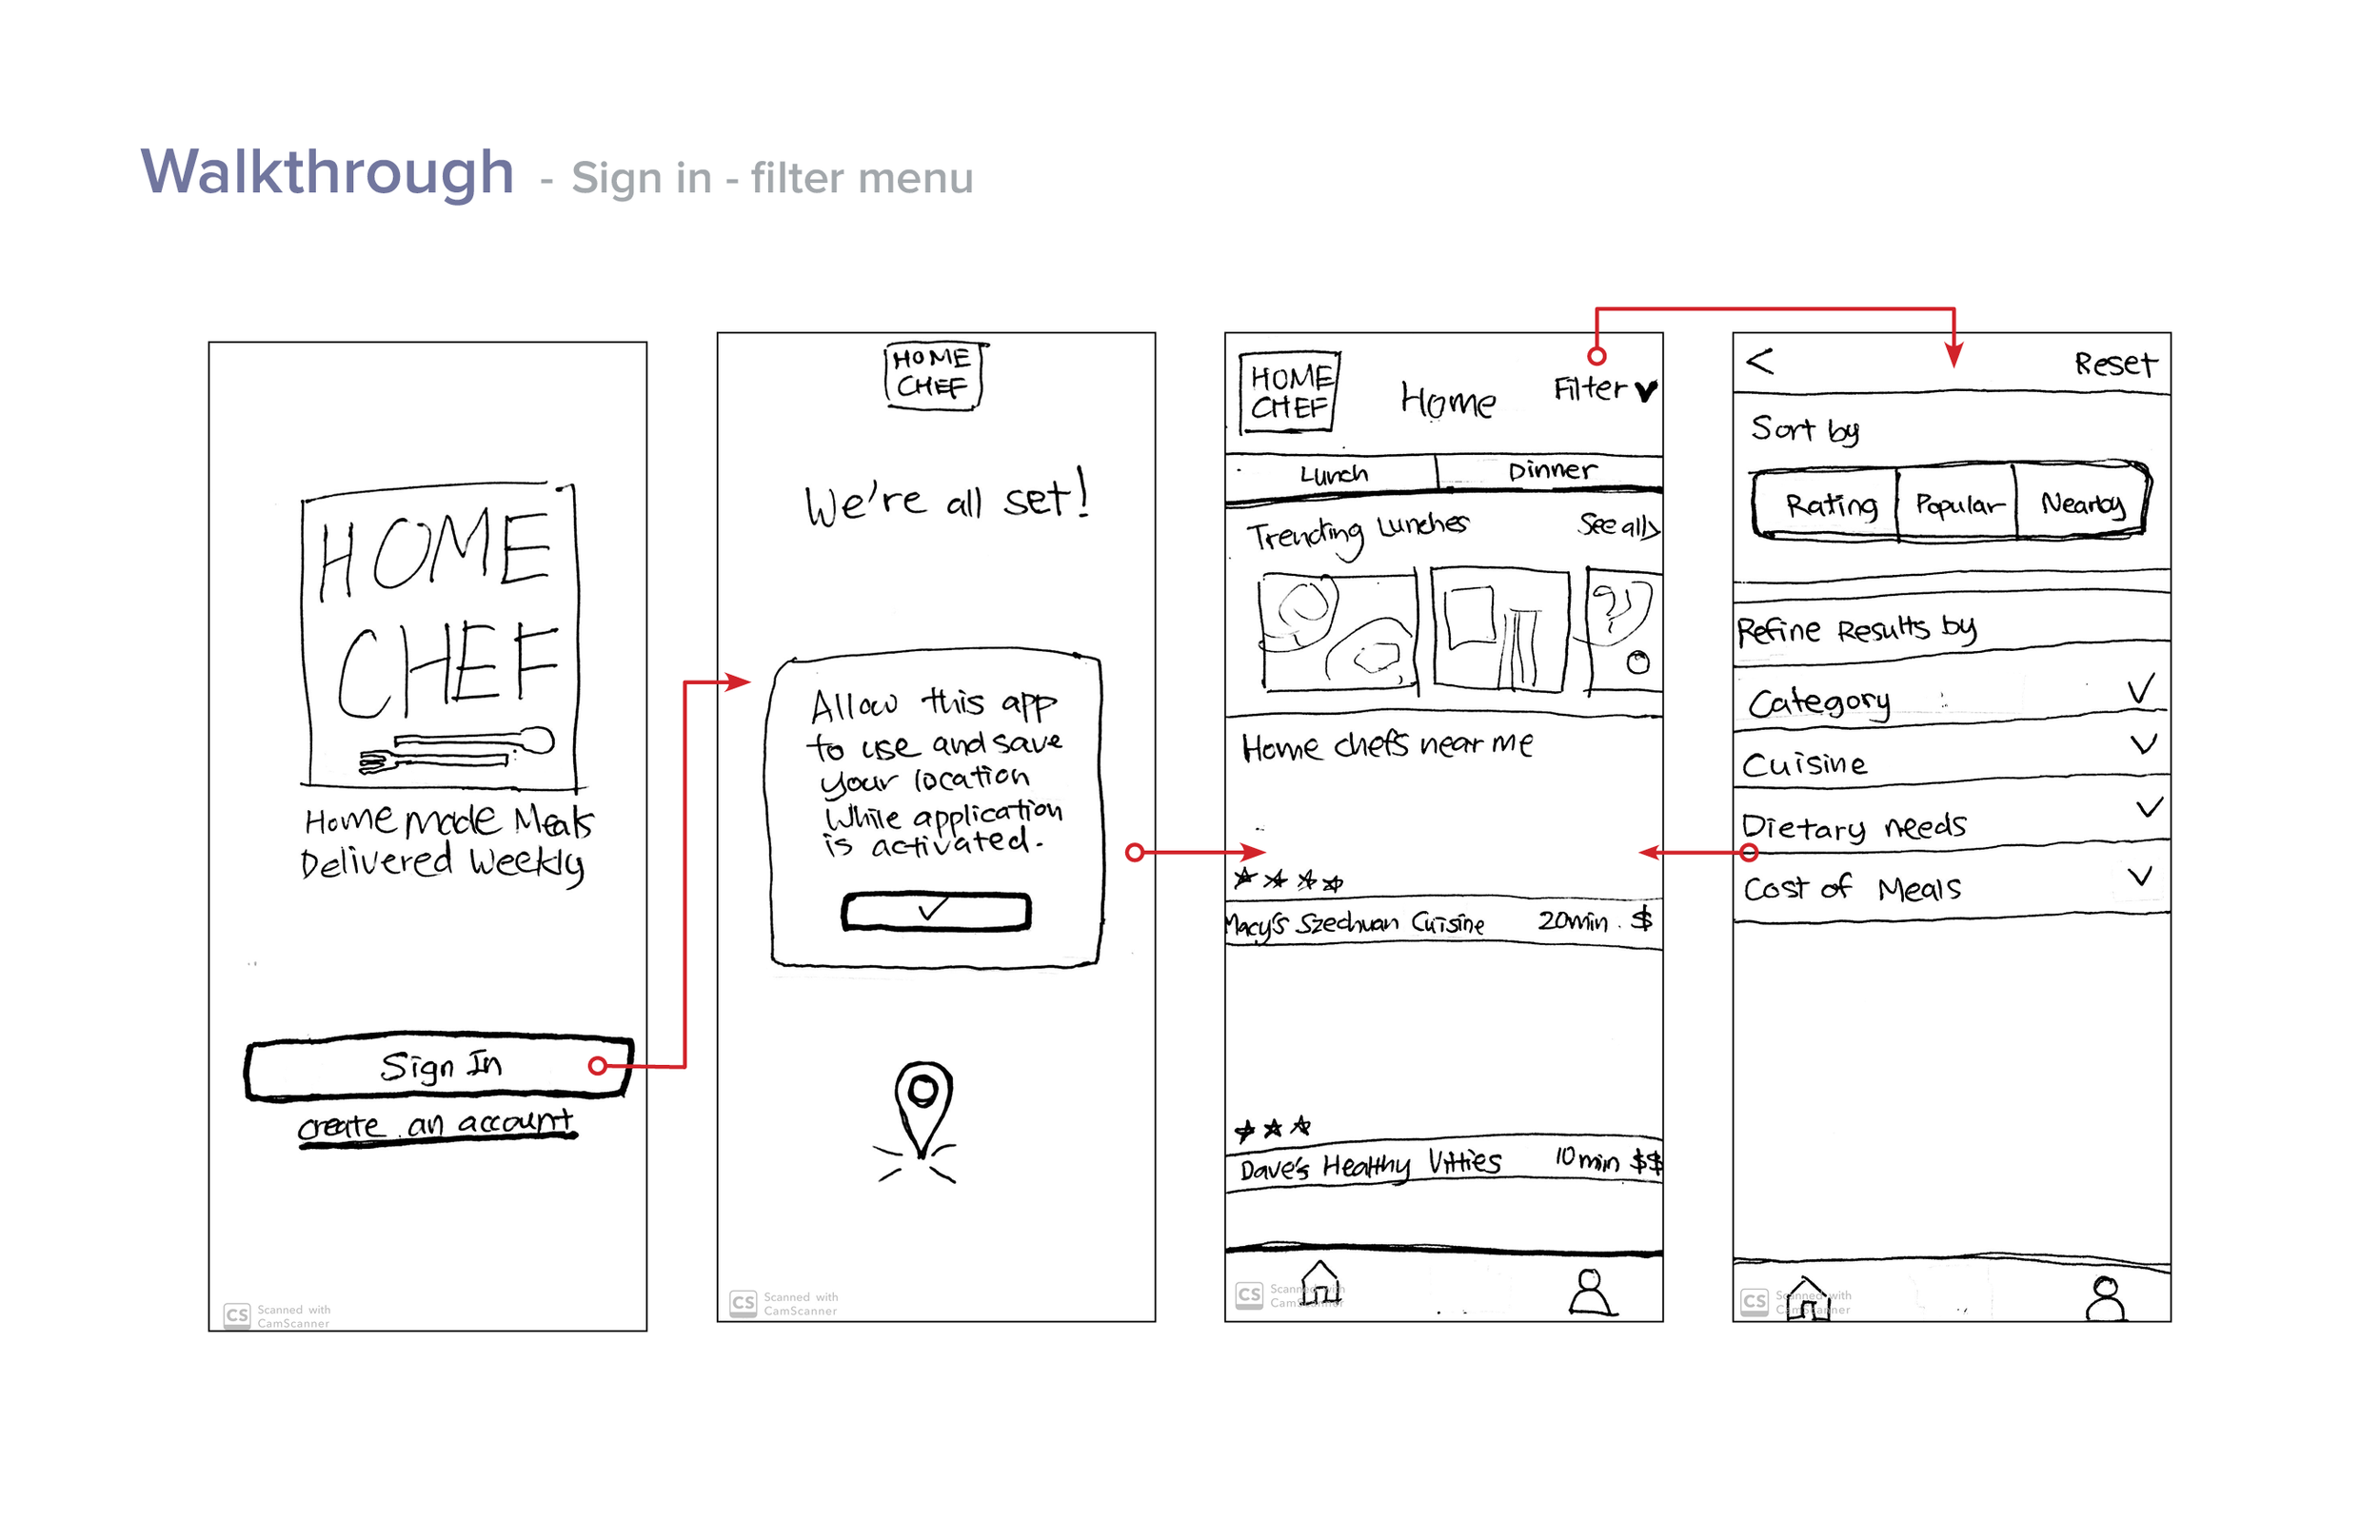 Walkthrough - Sign in - filter menu
HOME
CHEF
Home made Meals
Delivered Weekly
Sign In
create an account
CS Scanned with
CamScanner
HOME
CHEF
We're all set!
Allow this app
to use and save
your location
While application
is activated.
CS Scanned with
CamScanner
HOME
CHEF
Home
Filter
Lunch
Dinner
Trending Lunches
See all>
Home chefs near me
Macy's Szechuan Cuisine
20min. $
Dave's Healthy Vitties
10min $$
CS Scanned with
CamScanner
<
Reset
Sort by
Rating
Popular
Nearby
Refine Results by
Category
Cuisine
Dietary needs
Cost of Meals
CS Scanned with
CamScanner